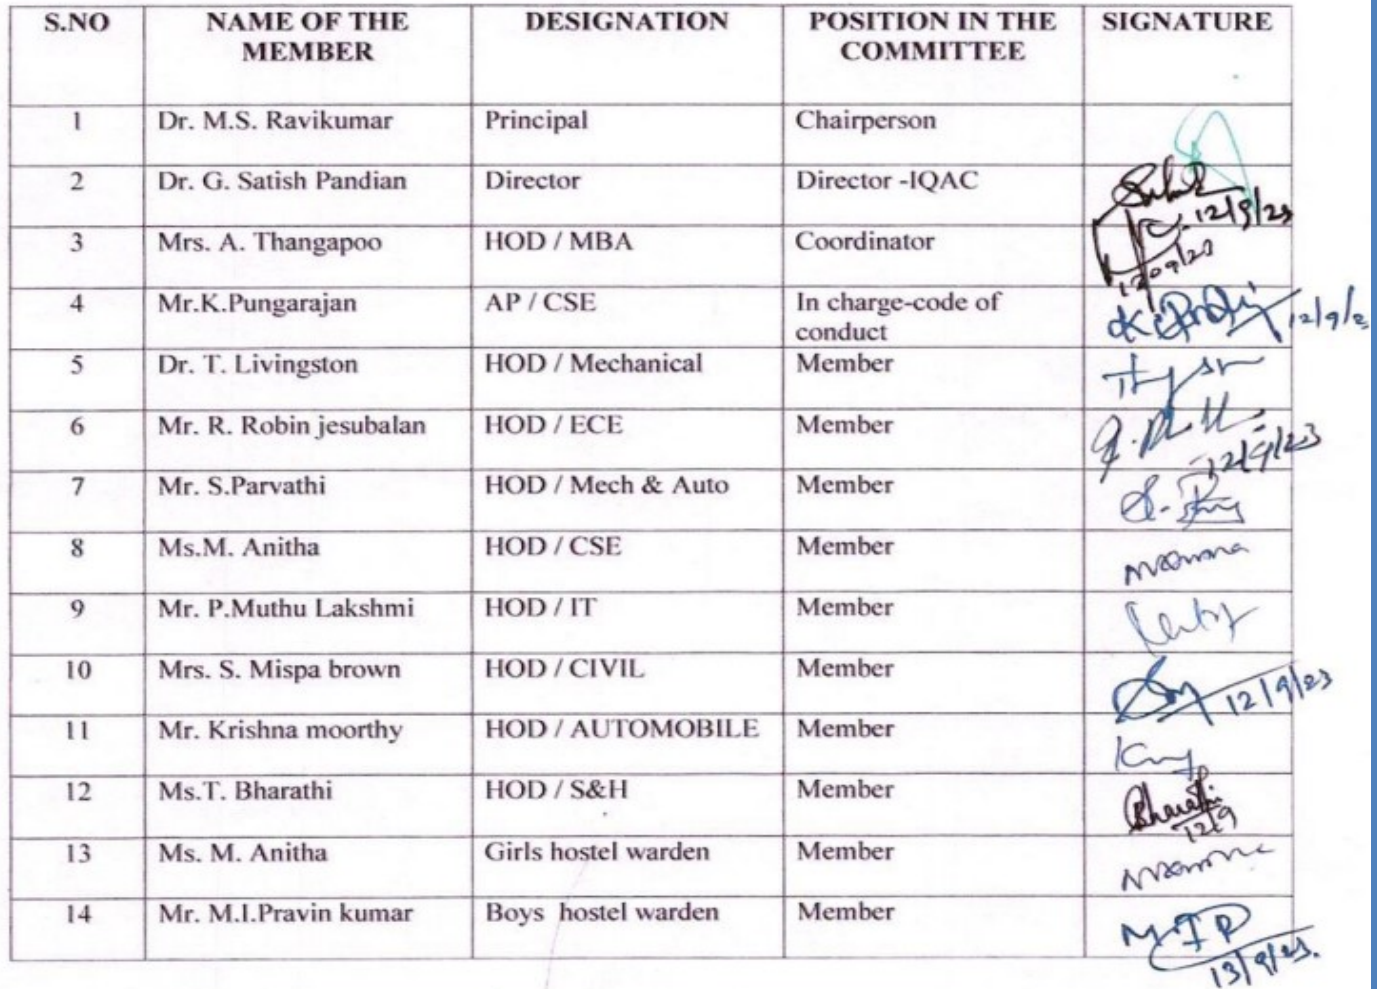 S.NO NAME OF THE MEMBER DESIGNATION POSITION IN THE COMMITTEE SIGNATURE
1 Dr. M.S. Ravikumar Principal Chairperson
2 Dr. G. Satish Pandian Director Director -IQAC 12/9/23
3 Mrs. A. Thangapoo HOD / MBA Coordinator 12/09/23
4 Mr.K.Pungarajan AP / CSE In charge-code of conduct 12/9/2
5 Dr. T. Livingston HOD / Mechanical Member
6 Mr. R. Robin jesubalan HOD / ECE Member 12/9/23
7 Mr. S.Parvathi HOD / Mech & Auto Member
8 Ms.M. Anitha HOD / CSE Member
9 Mr. P.Muthu Lakshmi HOD / IT Member
10 Mrs. S. Mispa brown HOD / CIVIL Member 12/9/23
11 Mr. Krishna moorthy HOD / AUTOMOBILE Member
12 Ms.T. Bharathi HOD / S&H Member Bharathi 12/9
13 Ms. M. Anitha Girls hostel warden Member
14 Mr. M.I.Pravin kumar Boys hostel warden Member MIP 13/9/23.